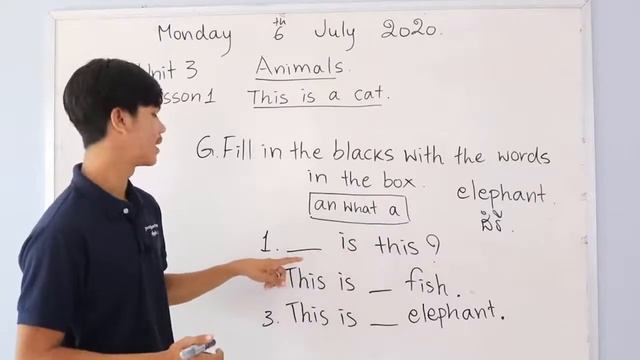 Monday 6th July 2020.
Unit 3 Animals.
Lesson 1 This is a cat.
G. Fill in the blacks with the words
in the box.
an what a
elephant.
ដំរី
1. __ is this?
This is __ fish.
3. This is __ elephant.